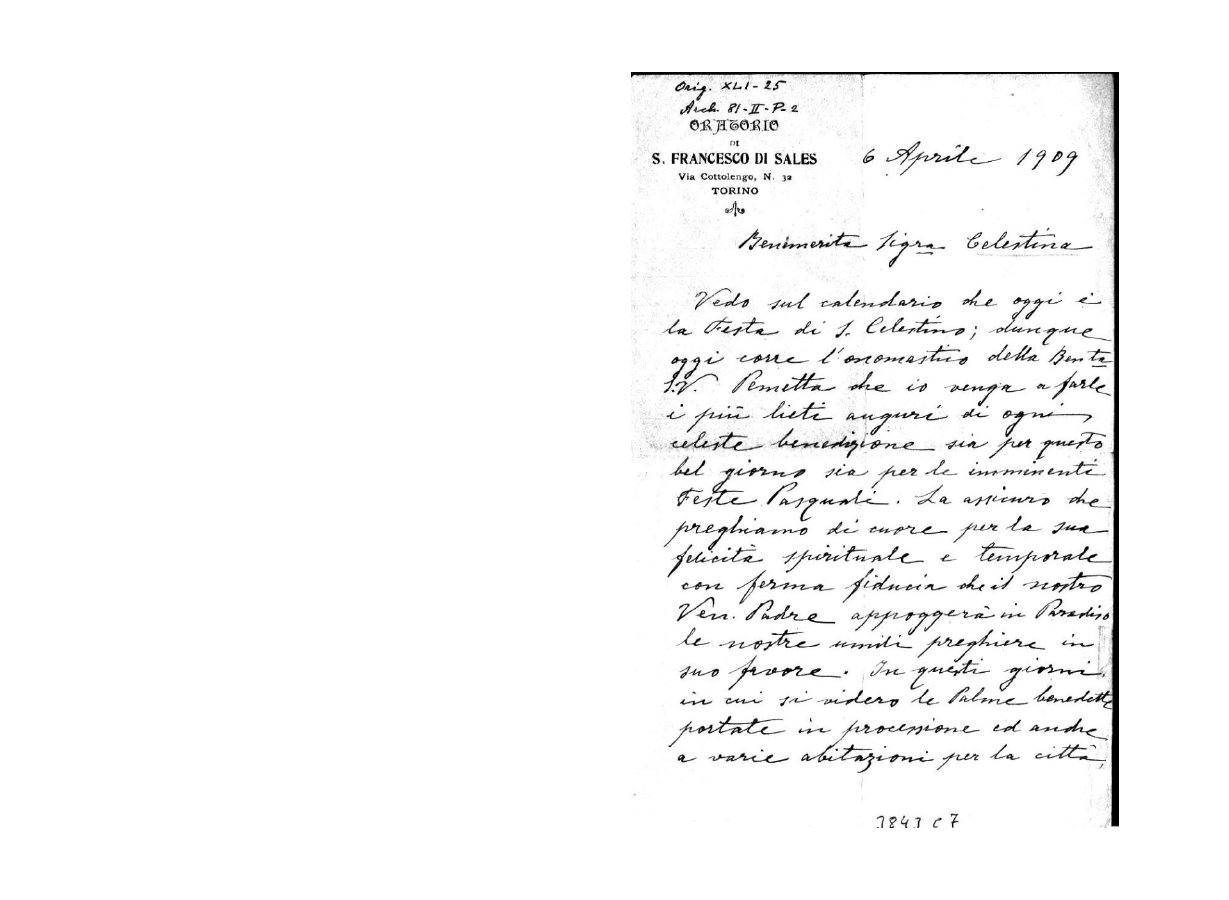 Orig. XLI-25
Arch. 81-II-P-2
ORATORIO
DI
S. FRANCESCO DI SALES
Via Cottolengo, N. 32
TORINO
6 Aprile 1909
Benemerita Sigra Celestina
Vedo sul calendario che oggi è
la Festa di S. Celestino; dunque
oggi corre l'onomastico della Benta
S.V. Pemetta che io venga a farle
i più lieti auguri di ogni
celeste benedizione sia per questo
bel giorno sia per le imminenti
Feste Pasquali. La assicuro che
preghiamo di cuore per la sua
felicità spirituale e temporale
con ferma fiducia che il nostro
Ven. Padre appoggerà in Paradiso
le nostre umili preghiere in
suo favore. In questi giorni
in cui si videro le Palme benedette
portate in processione ed anche
a varie abitazioni per la città,
3843 C 7